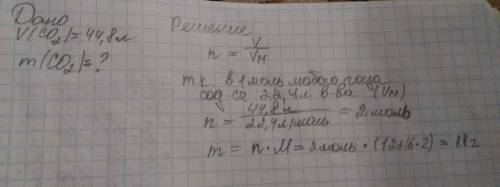 Дано
V(CO₂)=44,8л
m(CO₂)=?
Решение
n = V/VM
т.к. в 1 моль любого газа
сод-ся 22,4л в-ва (VM)
n = 44,8л/22,4л/моль = 2 моль
m = n·M = 2моль·(12+16·2) = 88г